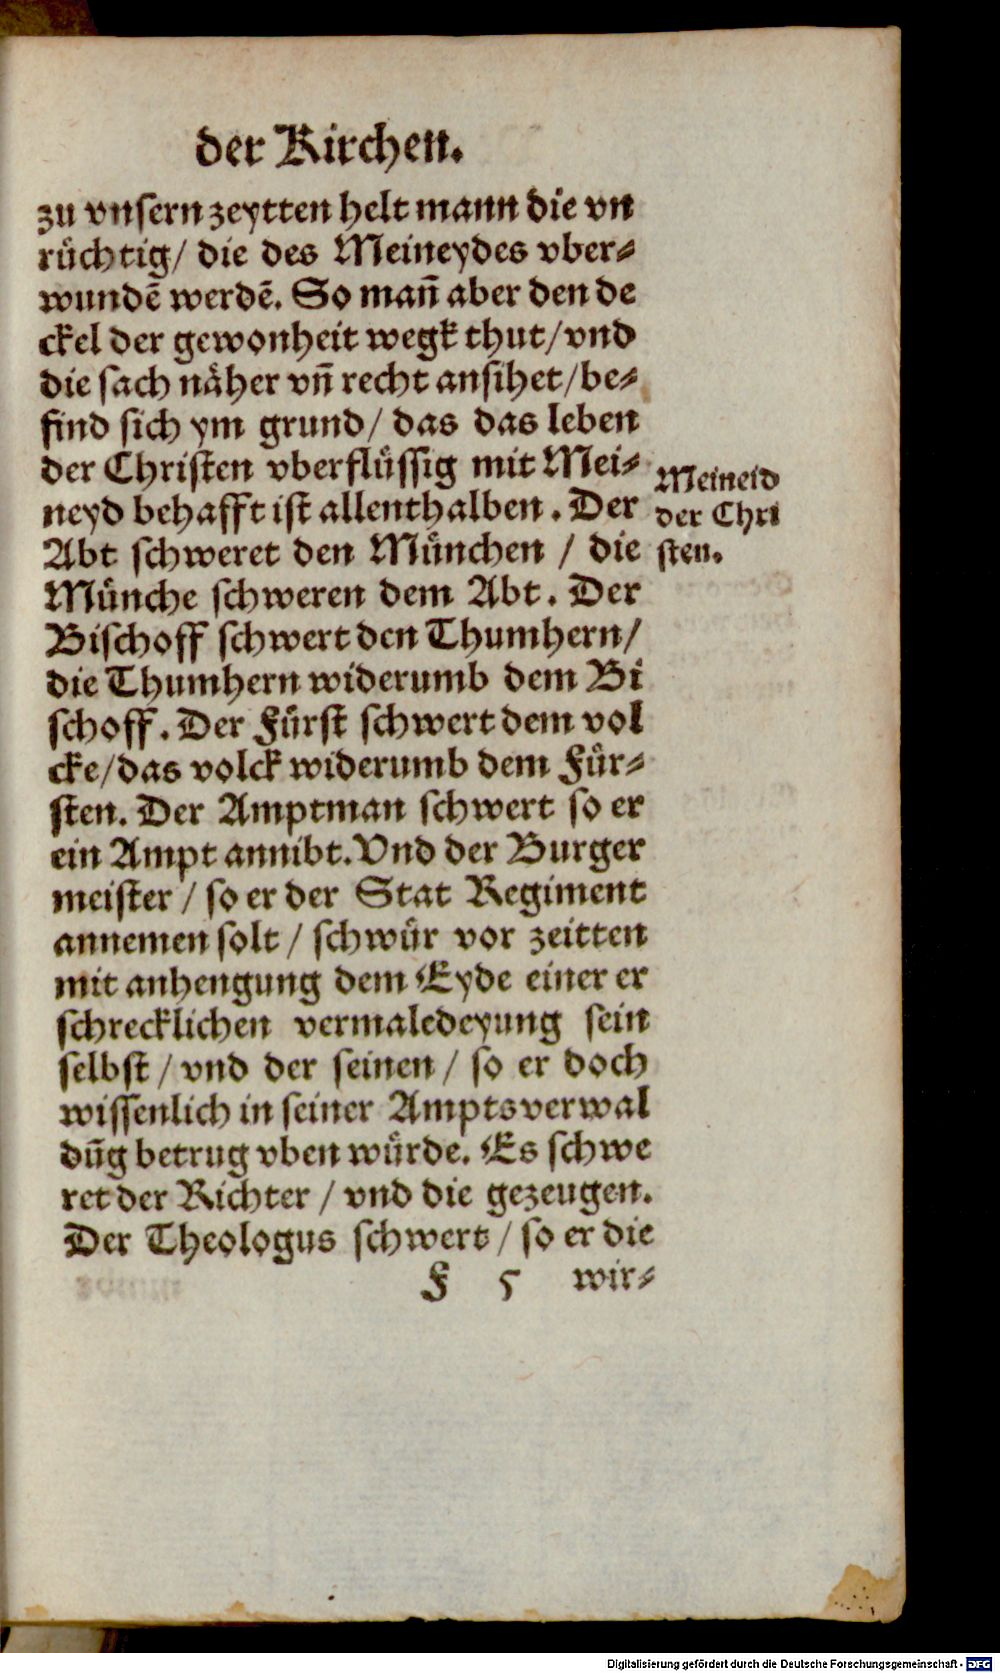 der Kirchen.
zu vnsern zeytten helt mann die vn
rüchtig/ die des Meineydes vber-
wundẽ werdẽ. So mañ aber den de
ckel der gewonheit wegk thut/vnd
die sach näher vñ recht ansihet/be-
find sich ym grund/ das das leben
der Christen vberflüssig mit Mei-
neyd behafft ist allenthalben. Der
Abt schweret den München / die
Münche schweren dem Abt. Der
Bischoff schwert den Thumhern/
die Thumhern widerumb dem Bi
schoff. Der Fürst schwert dem vol
cke/das volck widerumb dem Für-
sten. Der Amptman schwert so er
ein Ampt annibt. Vnd der Burger
meister / so er der Stat Regiment
annemen solt / schwür vor zeitten
mit anhengung dem Eyde einer er
schrecklichen vermaledeyung sein
selbst / vnd der seinen / so er doch
wissenlich in seiner Amptsverwal
dũg betrug vben würde. Es schwe
ret der Richter / vnd die gezeugen.
Der Theologus schwert / so er die
F 5 wir-
Meineid
der Chri
sten.
Digitalisierung gefördert durch die Deutsche Forschungsgemeinschaft - DFG